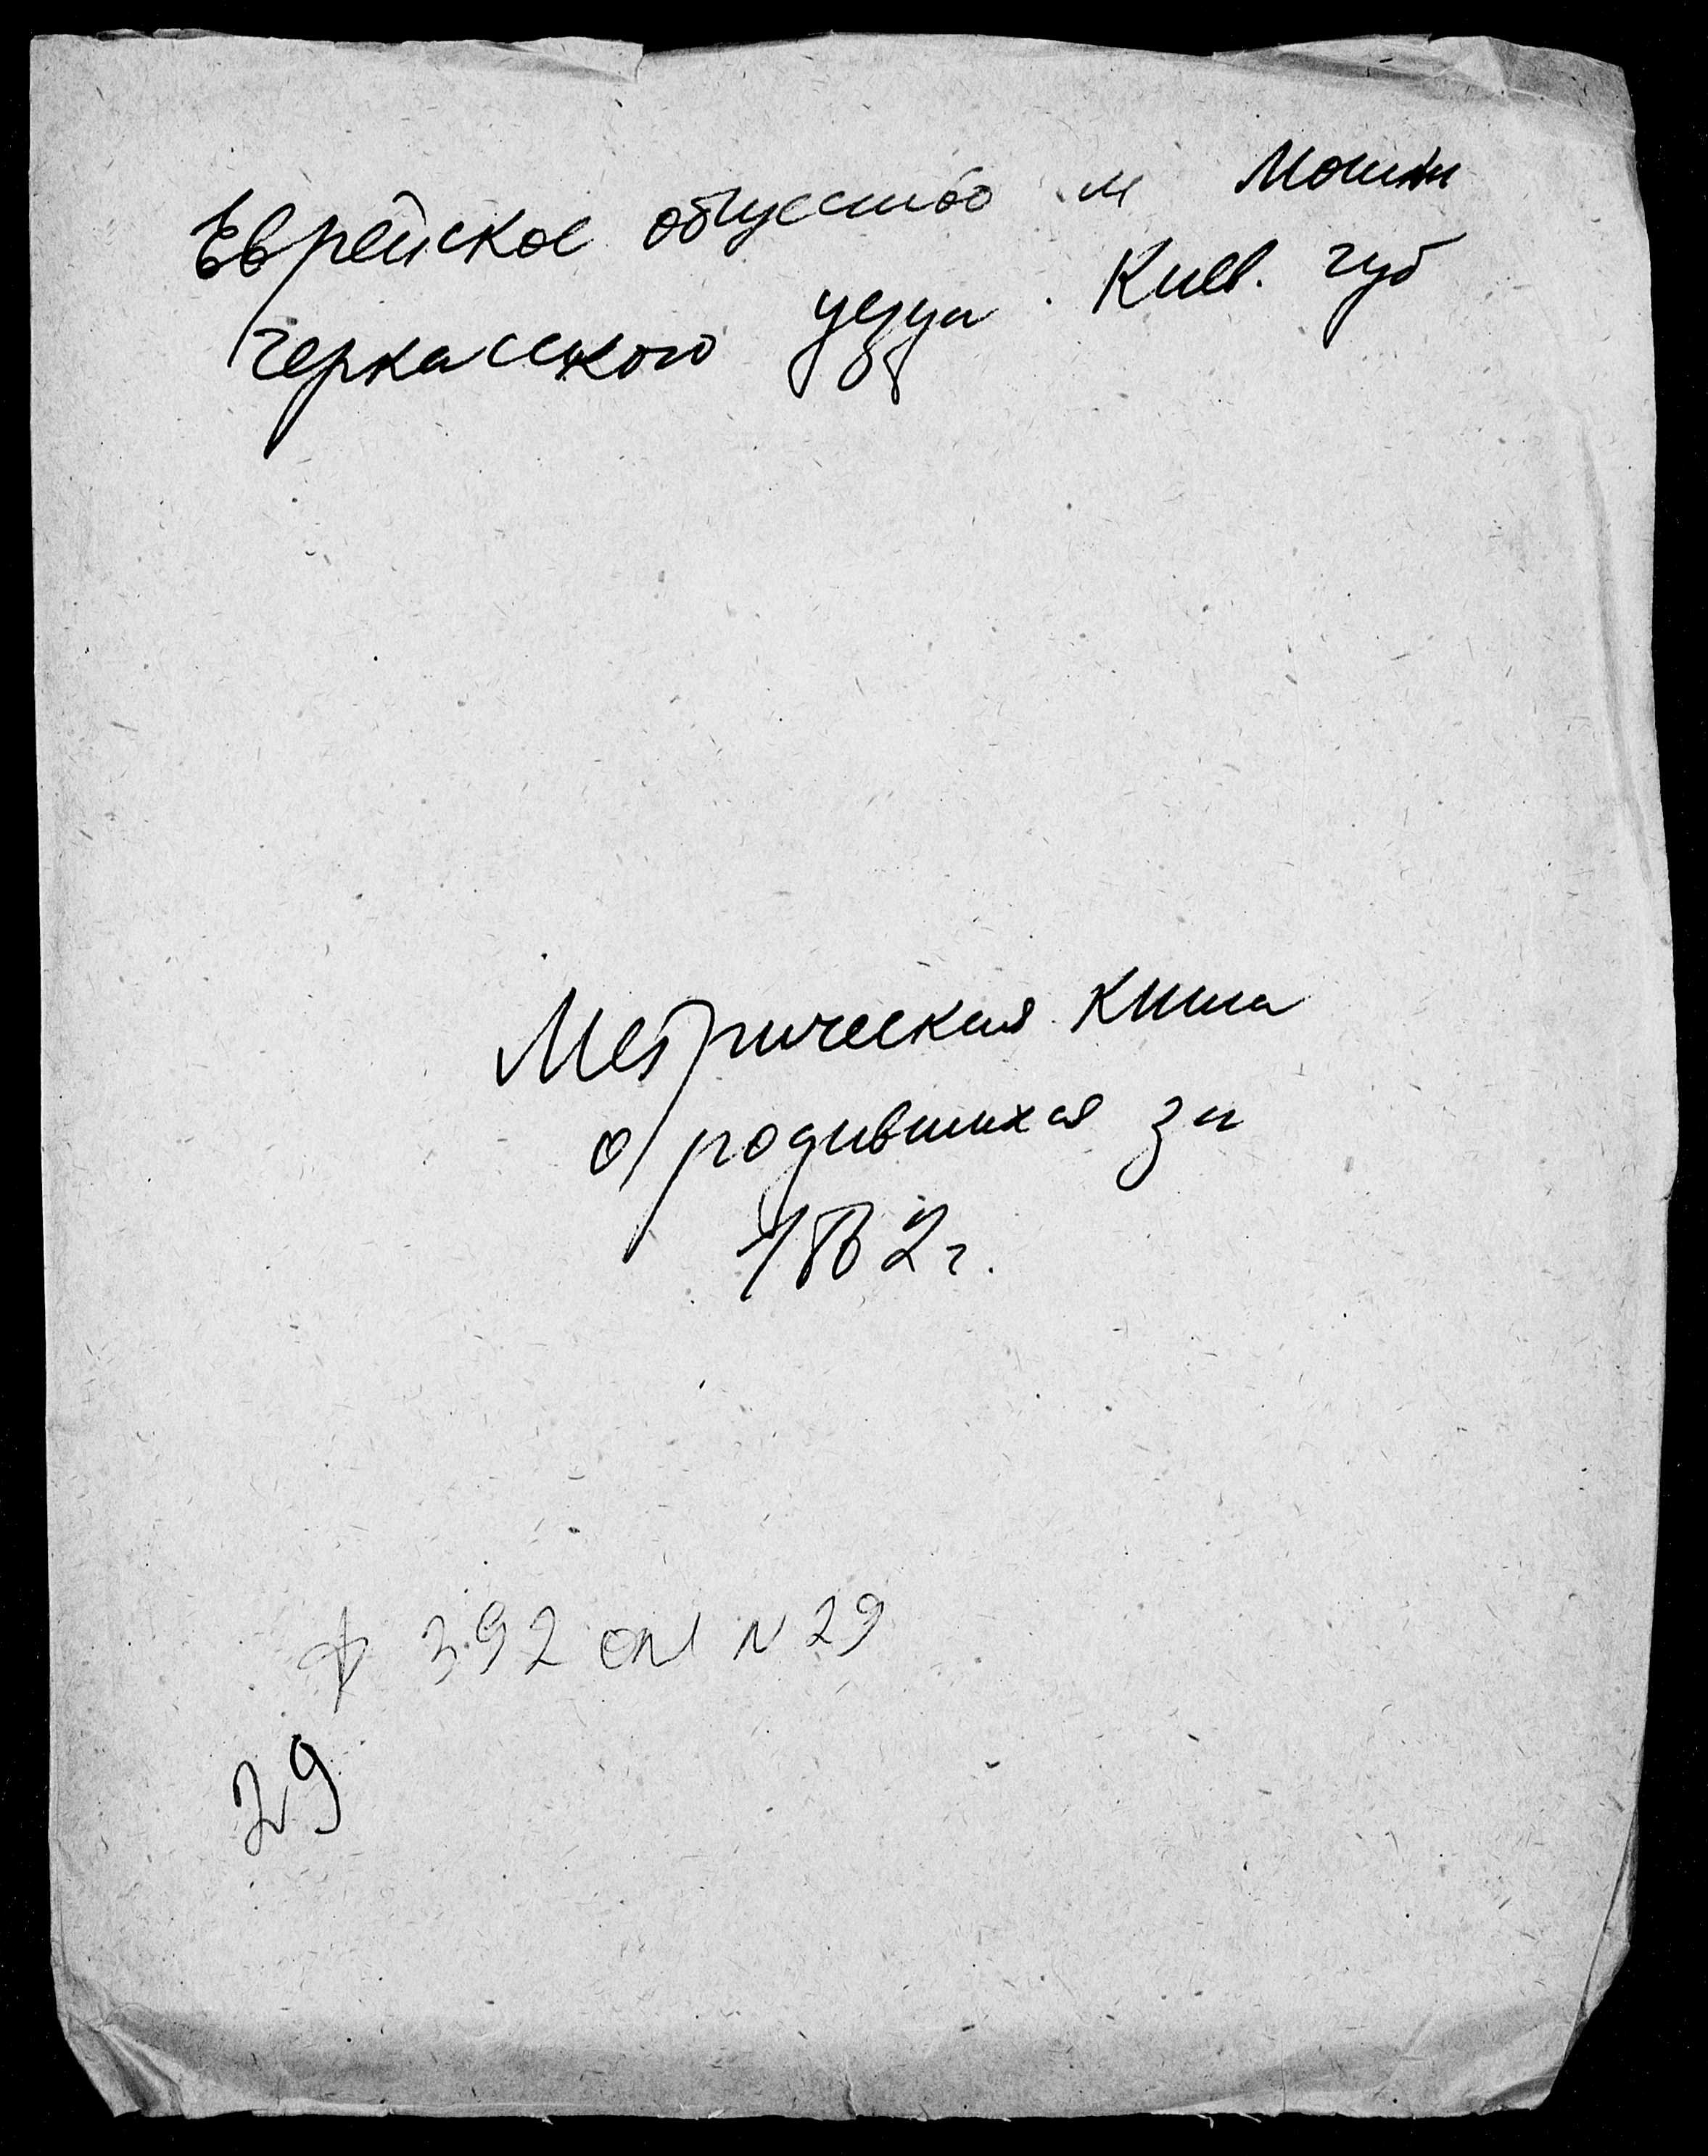 Еврейское общество м Мошны
Черкасского уезда. Киев. губ
Метрическая книга
о родившихся за
1862 г.
ф 392 оп 1 N 29
29